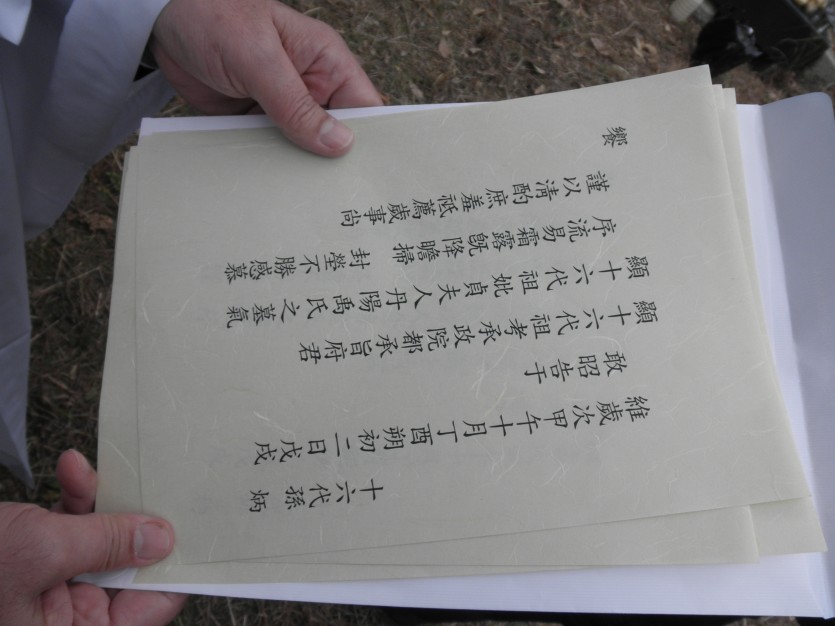 十六代孫炳
維歲次甲午十月丁酉朔初二日戊戌
敢昭告于
顯十六代祖考承政院都承旨府君
顯十六代祖妣貞夫人丹陽禹氏之墓氣
序流易霜露旣降瞻掃封塋不勝感慕
謹以清酌庶羞祗薦歲事尚
饗